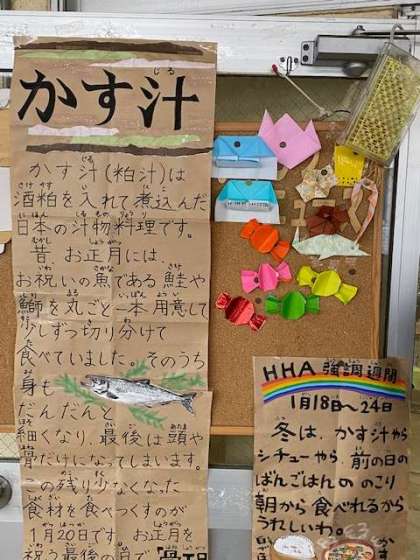 かす汁
かす汁(粕汁)は
酒粕を入れて煮込んだ
日本の汁物料理です。
昔、お正月には、
お祝いの魚である鮭や
鰤を丸ごと一本用意して
少しずつ切り分けて
食べていました。そのうち
身も
だんだんと
細くなり、最後は頭や
骨だけになってしまいます。
この残り少なくなった
食材を食べつくすのが
1月20日です。お正月を
祝う最後の
HHA 強調週間
1月18日〜24日
冬は、かす汁やら
シチューやら 前の日の
ばんごはんの のこり
朝から食べれるから
うれしいわ。